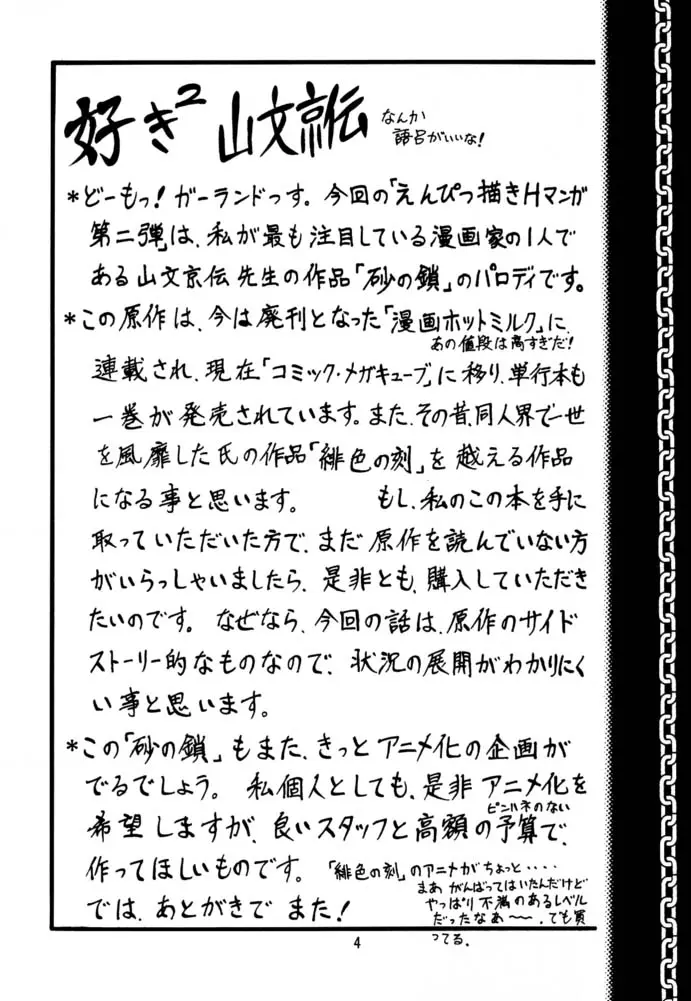 好き²山文京伝 なんか
語呂がいいな!
*どーもっ!ガーランドっす。今回の「えんぴつ描きHマンガ
第二弾」は、私が最も注目している漫画家の1人で
ある山文京伝先生の作品「砂の鎖」のパロディです。
*この原作は、今は廃刊となった「漫画ホットミルク」に、
あの値段は高すぎだ!
連載され、現在「コミック・メガキューブ」に移り、単行本も
一巻が発売されています。また、その昔、同人界で一世
を風靡した氏の作品「緋色の刻」を越える作品
になる事と思います。 もし、私のこの本を手に
取っていただいた方で、まだ原作を読んでいない方
がいらっしゃいましたら、是非とも、購入していただき
たいのです。なぜなら、今回の話は、原作のサイド
ストーリー的なものなので、状況の展開がわかりにく
い事と思います。
*この「砂の鎖」もまた、きっとアニメ化の企画が
でるでしょう。私個人としても、是非アニメ化を
ピンハネのない
希望しますが、良いスタッフと高額の予算で、
作ってほしいものです。「緋色の刻」のアニメがちょっと・・・・
まあがんばってはいたんだけど
やっぱり不満のあるレベル
だったなあ〜〜、でも買
ってる。
では、あとがきでまた!
4